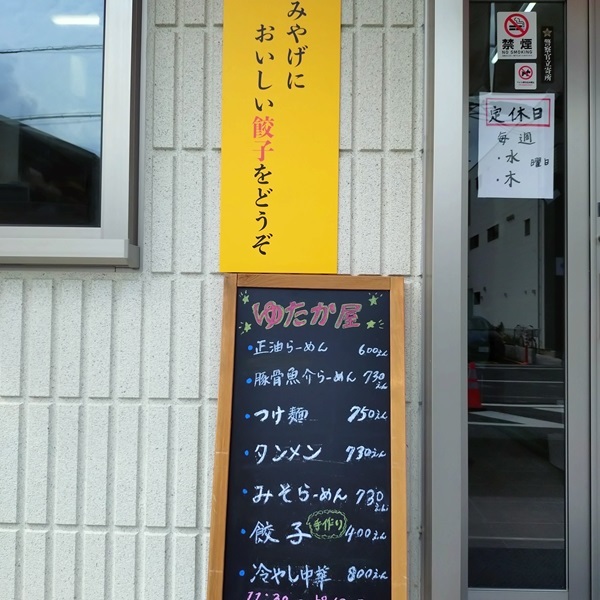 みやげに
おいしい餃子をどうぞ
禁煙
NO SMOKING
定休日
毎週
・水 曜日
・木
ゆたか屋
・正油らーめん 600えん
・豚骨魚介らーめん 730えん
・つけ麺 750えん
・タンメン 730えん
・みそらーめん 730えん
・餃子 手作り 400えん
・冷やし中華 800えん
11:30